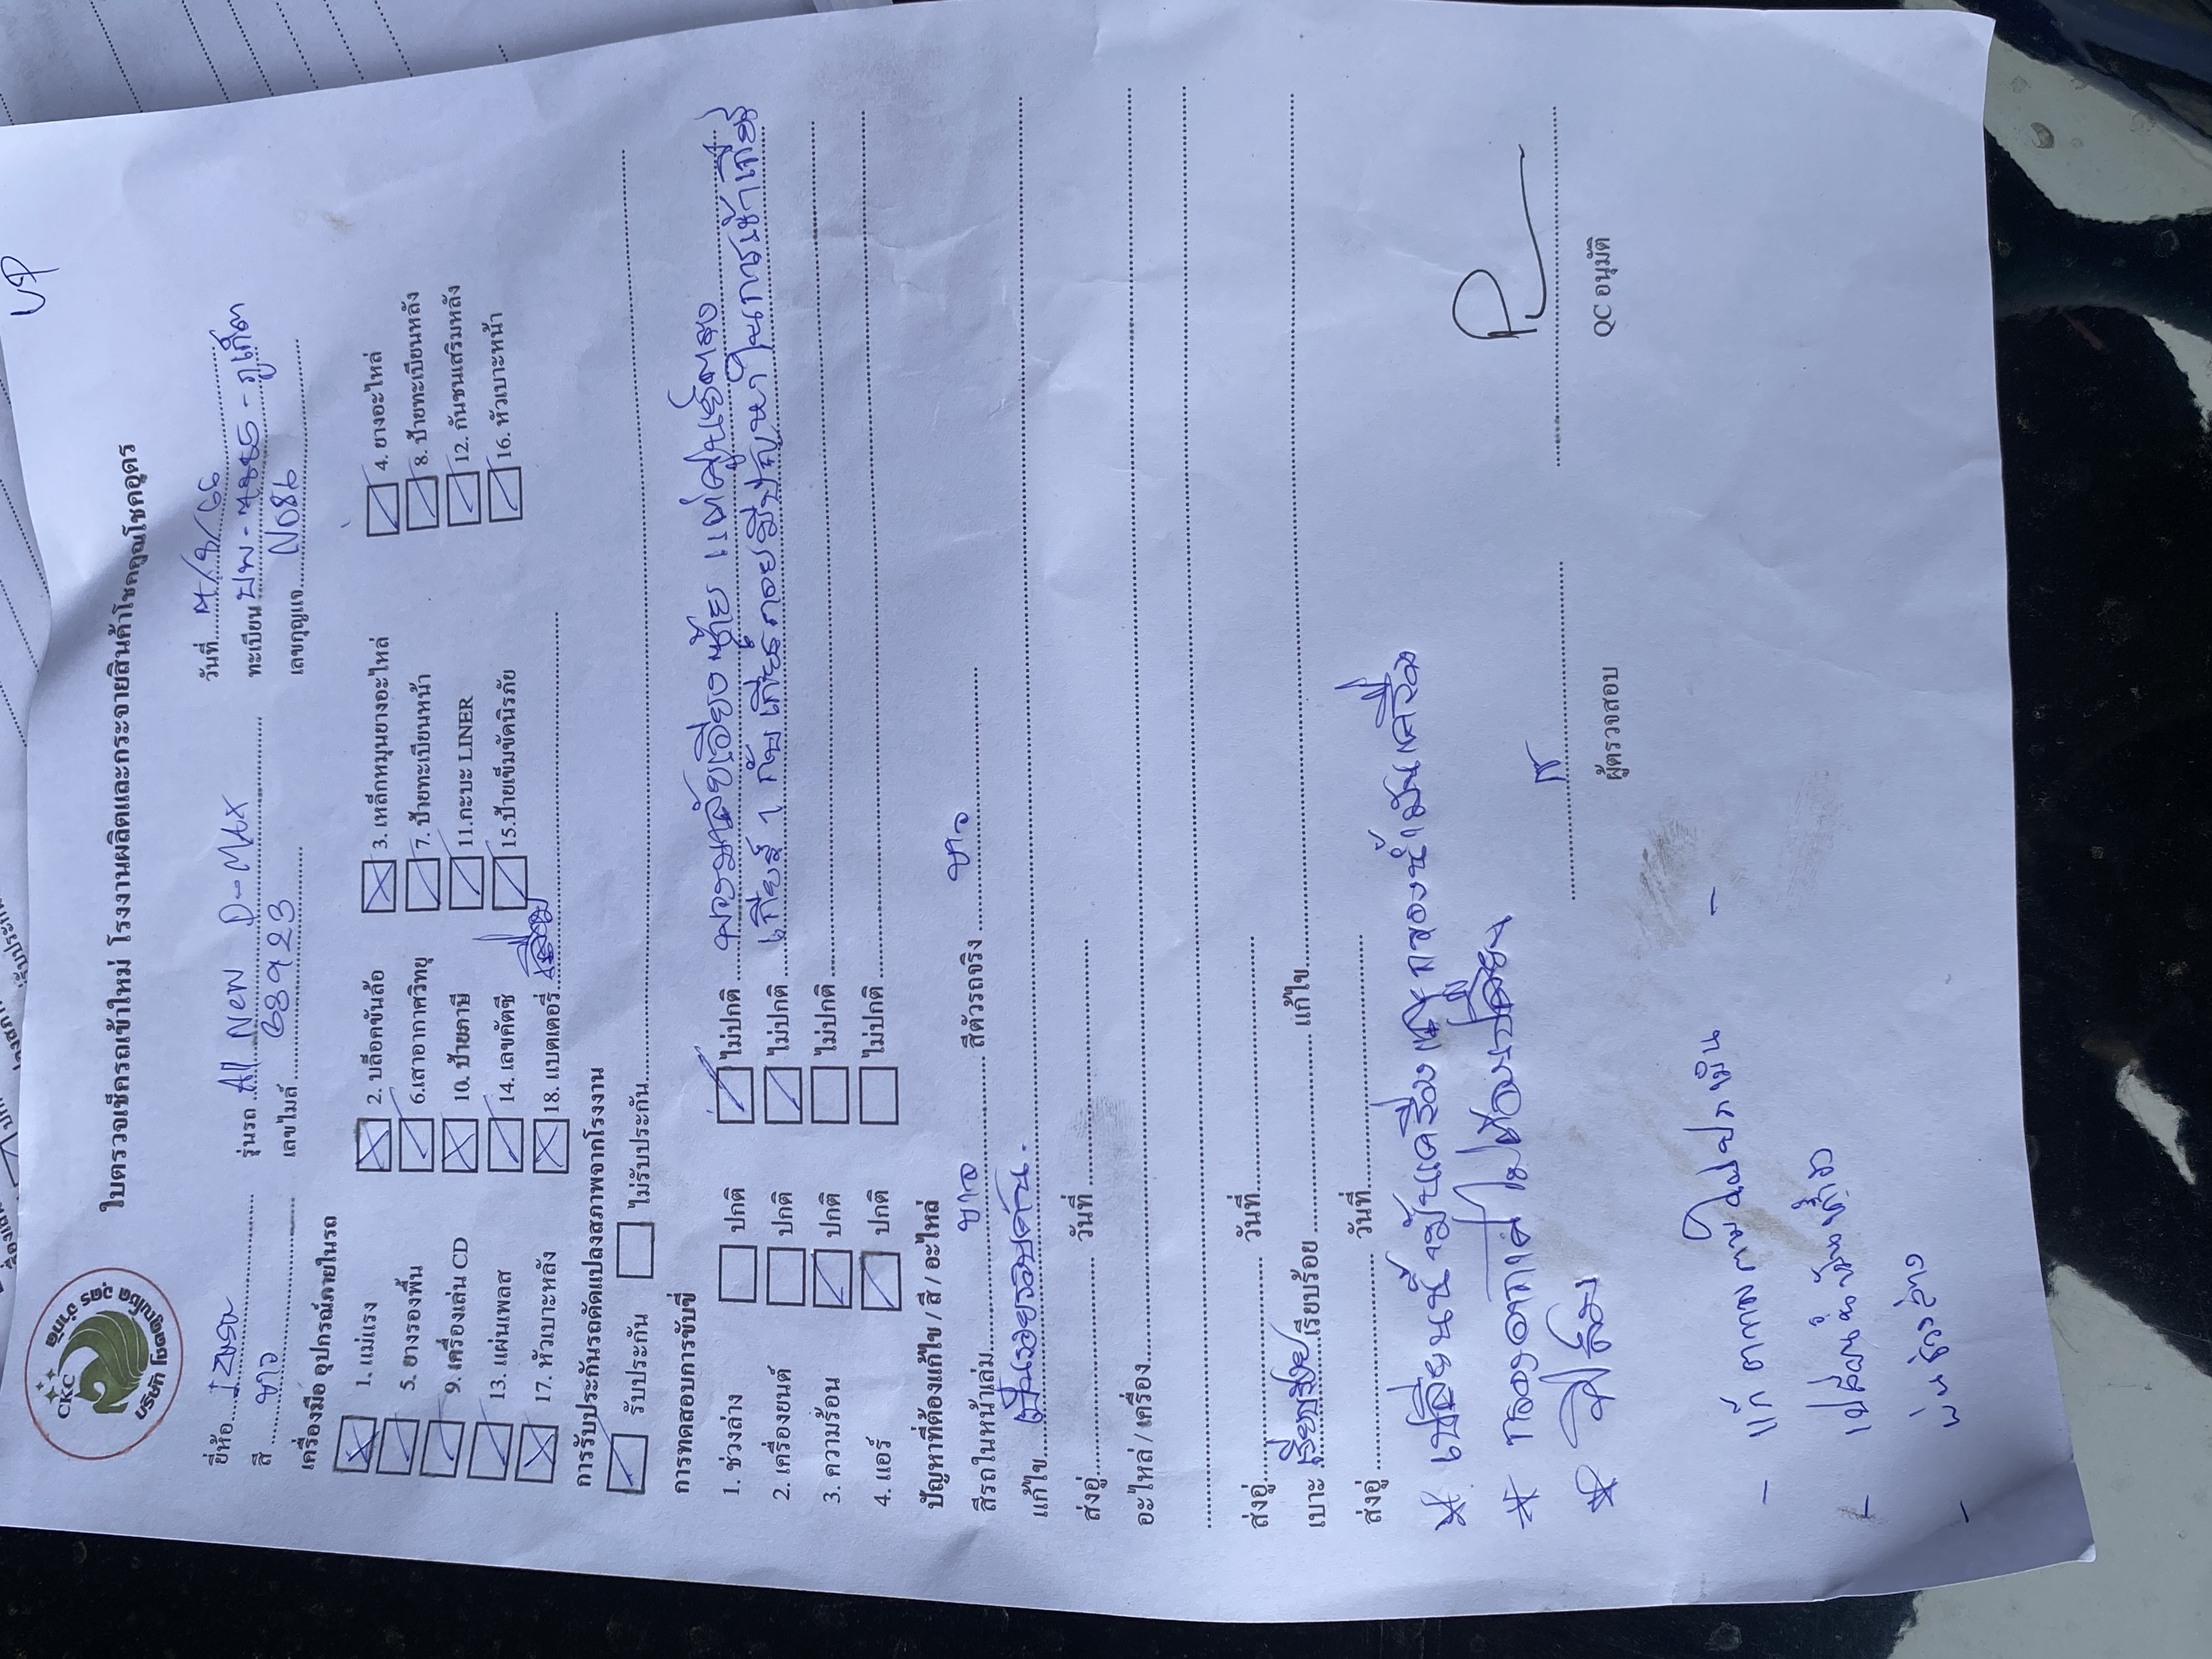 CKC
บริษัท โชคคูณโชค อุดร จำกัด
ใบตรวจเช็ครถเข้าใหม่ โรงงานผลิตและกระจายสินค้าโชคคูณโชคอุดร
วันที่ 4/9/66
ยี่ห้อ Isuzu รุ่นรถ All New D-Max ทะเบียน ภูเก็ต
สี ขาว เลขไมล์ 68923 เลขกุญแจ N086
เครื่องมือ อุปกรณ์ภายในรถ
1. แม่แรง 2. บล็อคขันล้อ 3. เหล็กหมุนยางอะไหล่ 4. ยางอะไหล่
5. ยางรองพื้น 6.เสาอากาศวิทยุ 7. ป้ายทะเบียนหน้า 8. ป้ายทะเบียนหลัง
9. เครื่องเล่น CD 10. ป้ายภาษี 11.กะบะ LINER 12. กันชนเสริมหลัง
13. แผ่นเพลส 14. เลขคัตซี 15.ป้ายเข็มขัดนิรภัย 16. หัวเบาะหน้า
17. หัวเบาะหลัง 18. แบตเตอรี่ เสื่อม
การรับประกันรถดัดแปลงสภาพจากโรงงาน
รับประกัน ไม่รับประกัน
การทดสอบการขับขี่
1. ช่วงล่าง ปกติ ไม่ปกติ พวงมาลัยเอียงซ้าย แต่ศูนย์ตรง
2. เครื่องยนต์ ปกติ ไม่ปกติ เกียร์ 1 กับเกียร์ถอยมีปัญหาในการเข้าเกียร์
3. ความร้อน ปกติ ไม่ปกติ
4. แอร์ ปกติ ไม่ปกติ
ปัญหาที่ต้องแก้ไข / สี / อะไหล่
สีรถในหน้าเล่ม ขาว สีตัวรถจริง ขาว
แก้ไข เป็นรอยรอบคัน.
ส่งอู่ วันที่
อะไหล่ / เครื่อง
ส่งอู่ วันที่
เบาะ เรียบร้อย เรียบร้อย แก้ไข
ส่งอู่ วันที่
* เปลี่ยนน้ำมันเครื่อง กรองน้ำมันเครื่อง
* กรองอากาศ ไม่ต้องเปลี่ยน
*
ผู้ตรวจสอบ QC อนุมัติ
- แก้ อาการตามใบประเมิน -
-
- พ่นช่วงล่าง